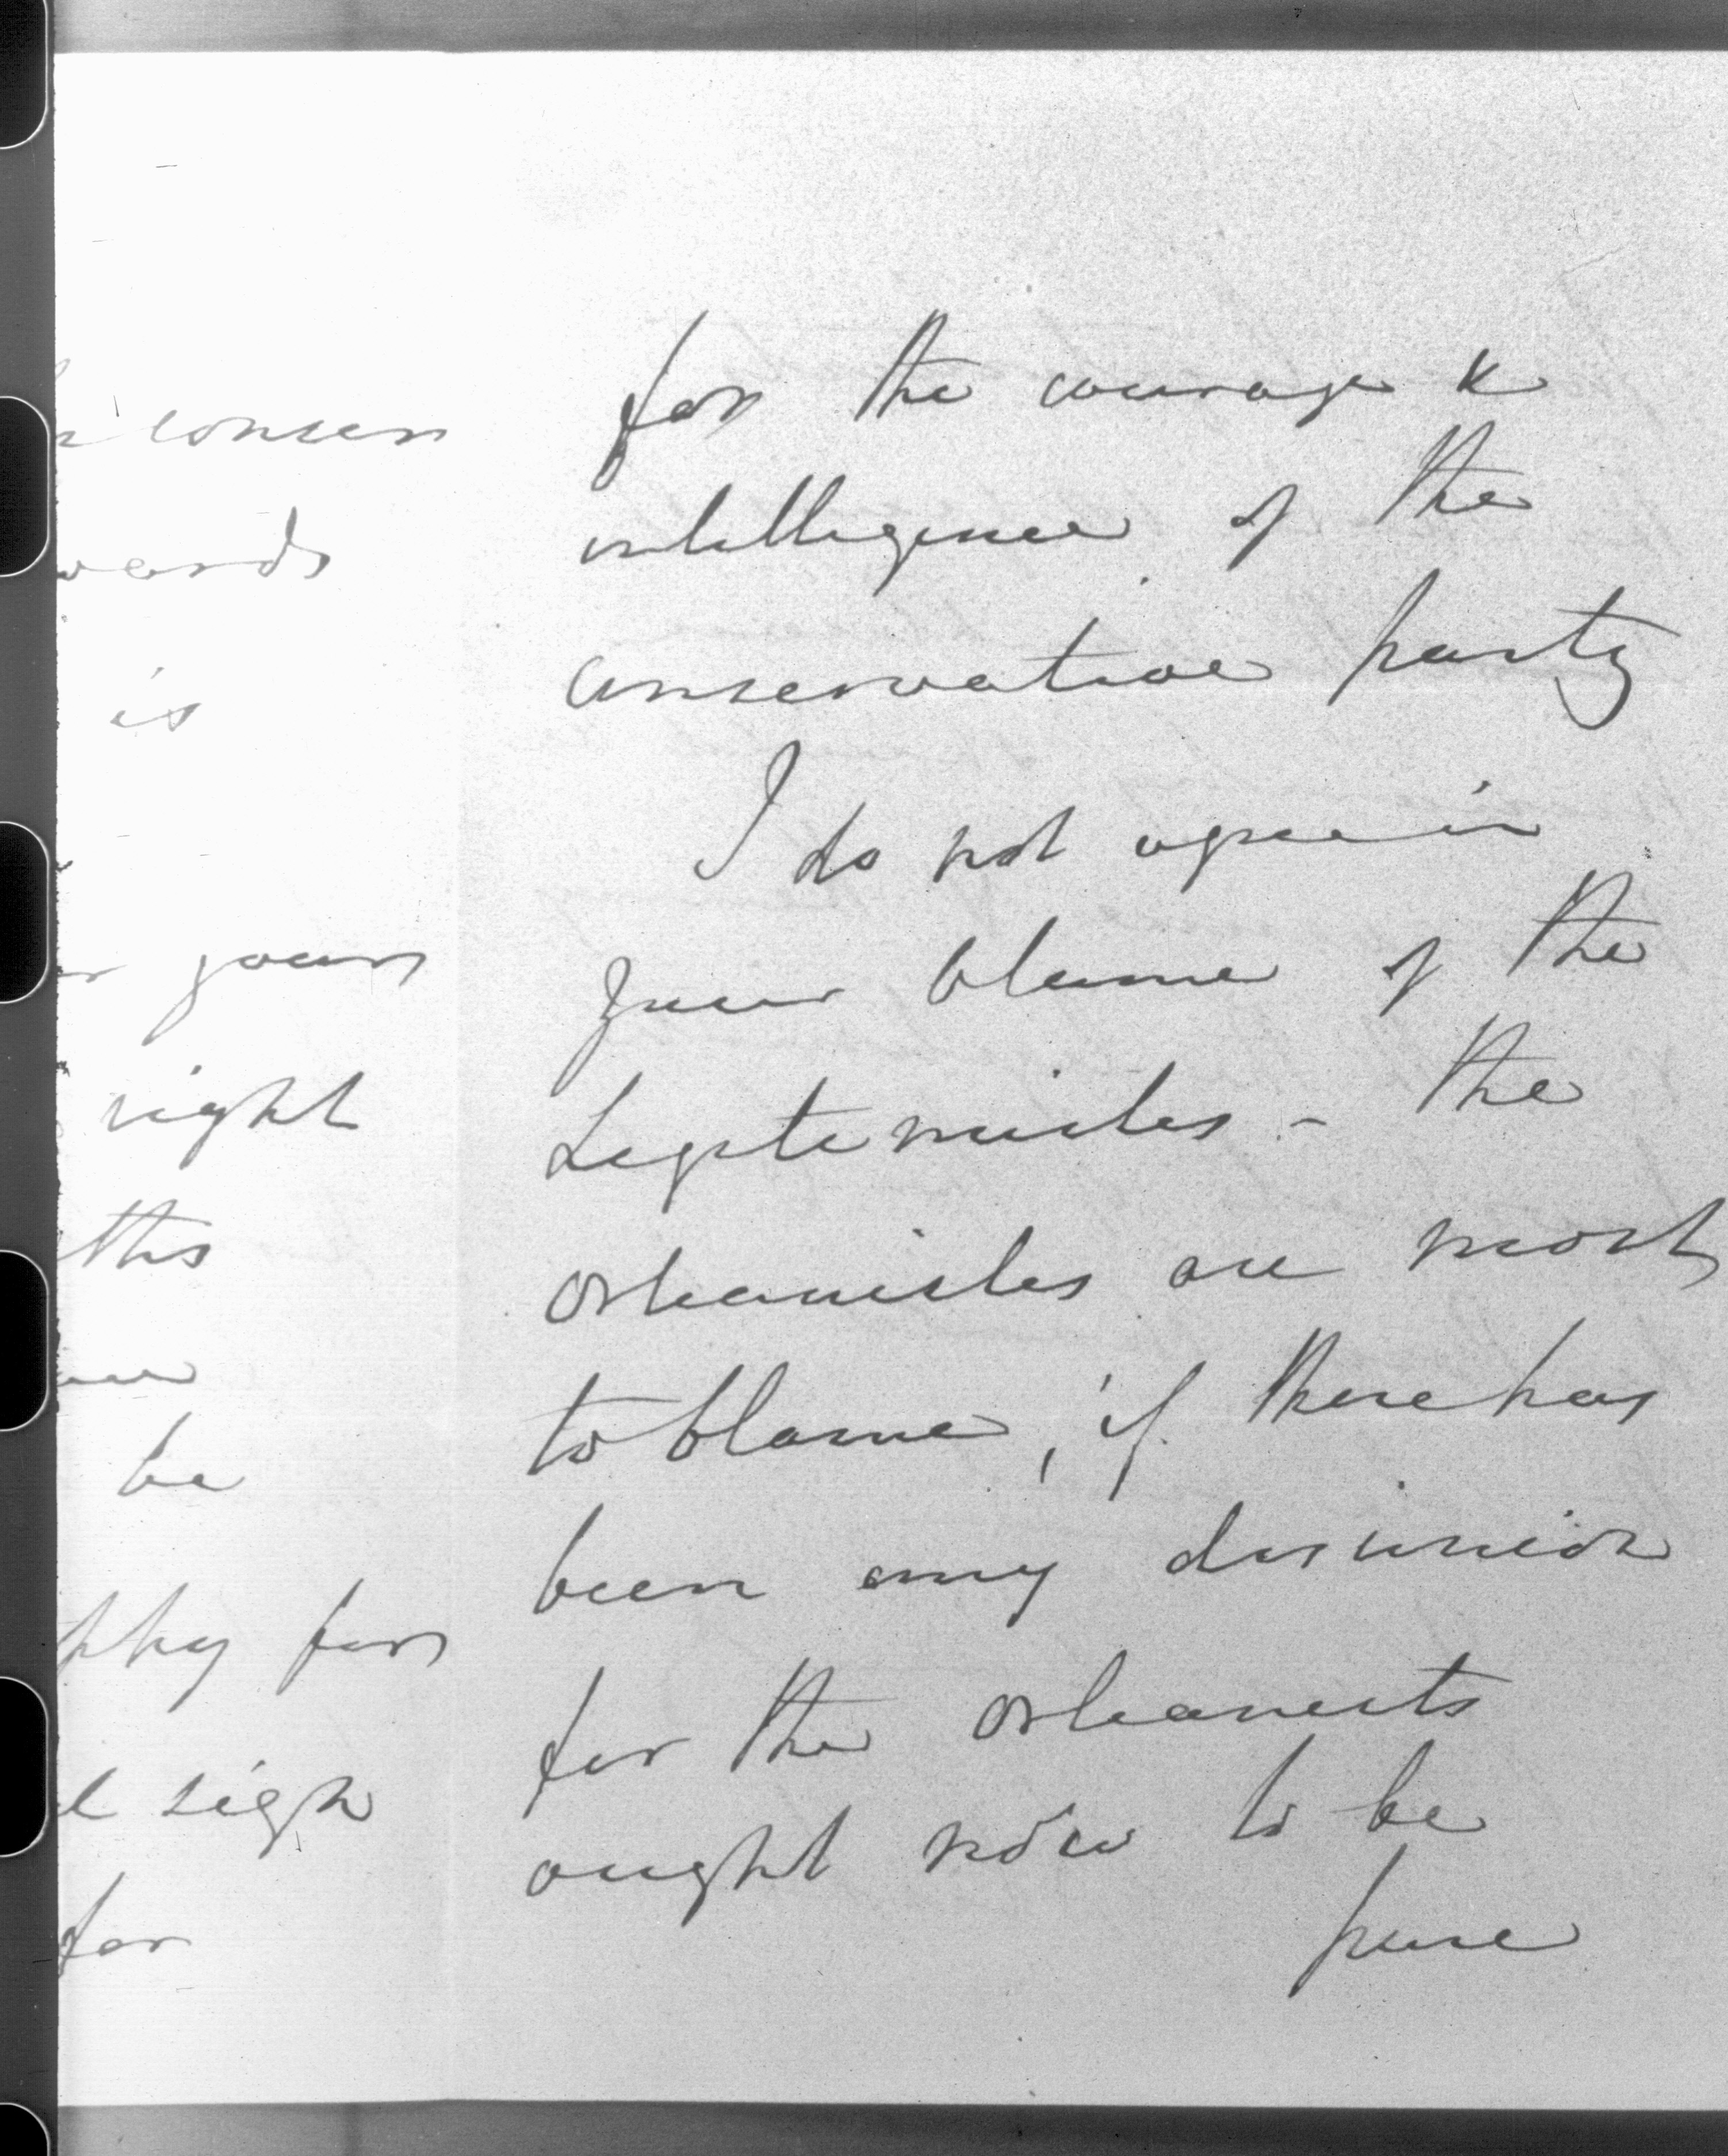 conser
wards
is
your
right
this
be
phy for
sigh
for
for the courage &
intelligence of the
conservative party
I do not agree in
your blame of the
Legitemistes - the
Orleanistes are most
to blame, if there has
been any disunion
for the Orleanists
ought now to be
pure